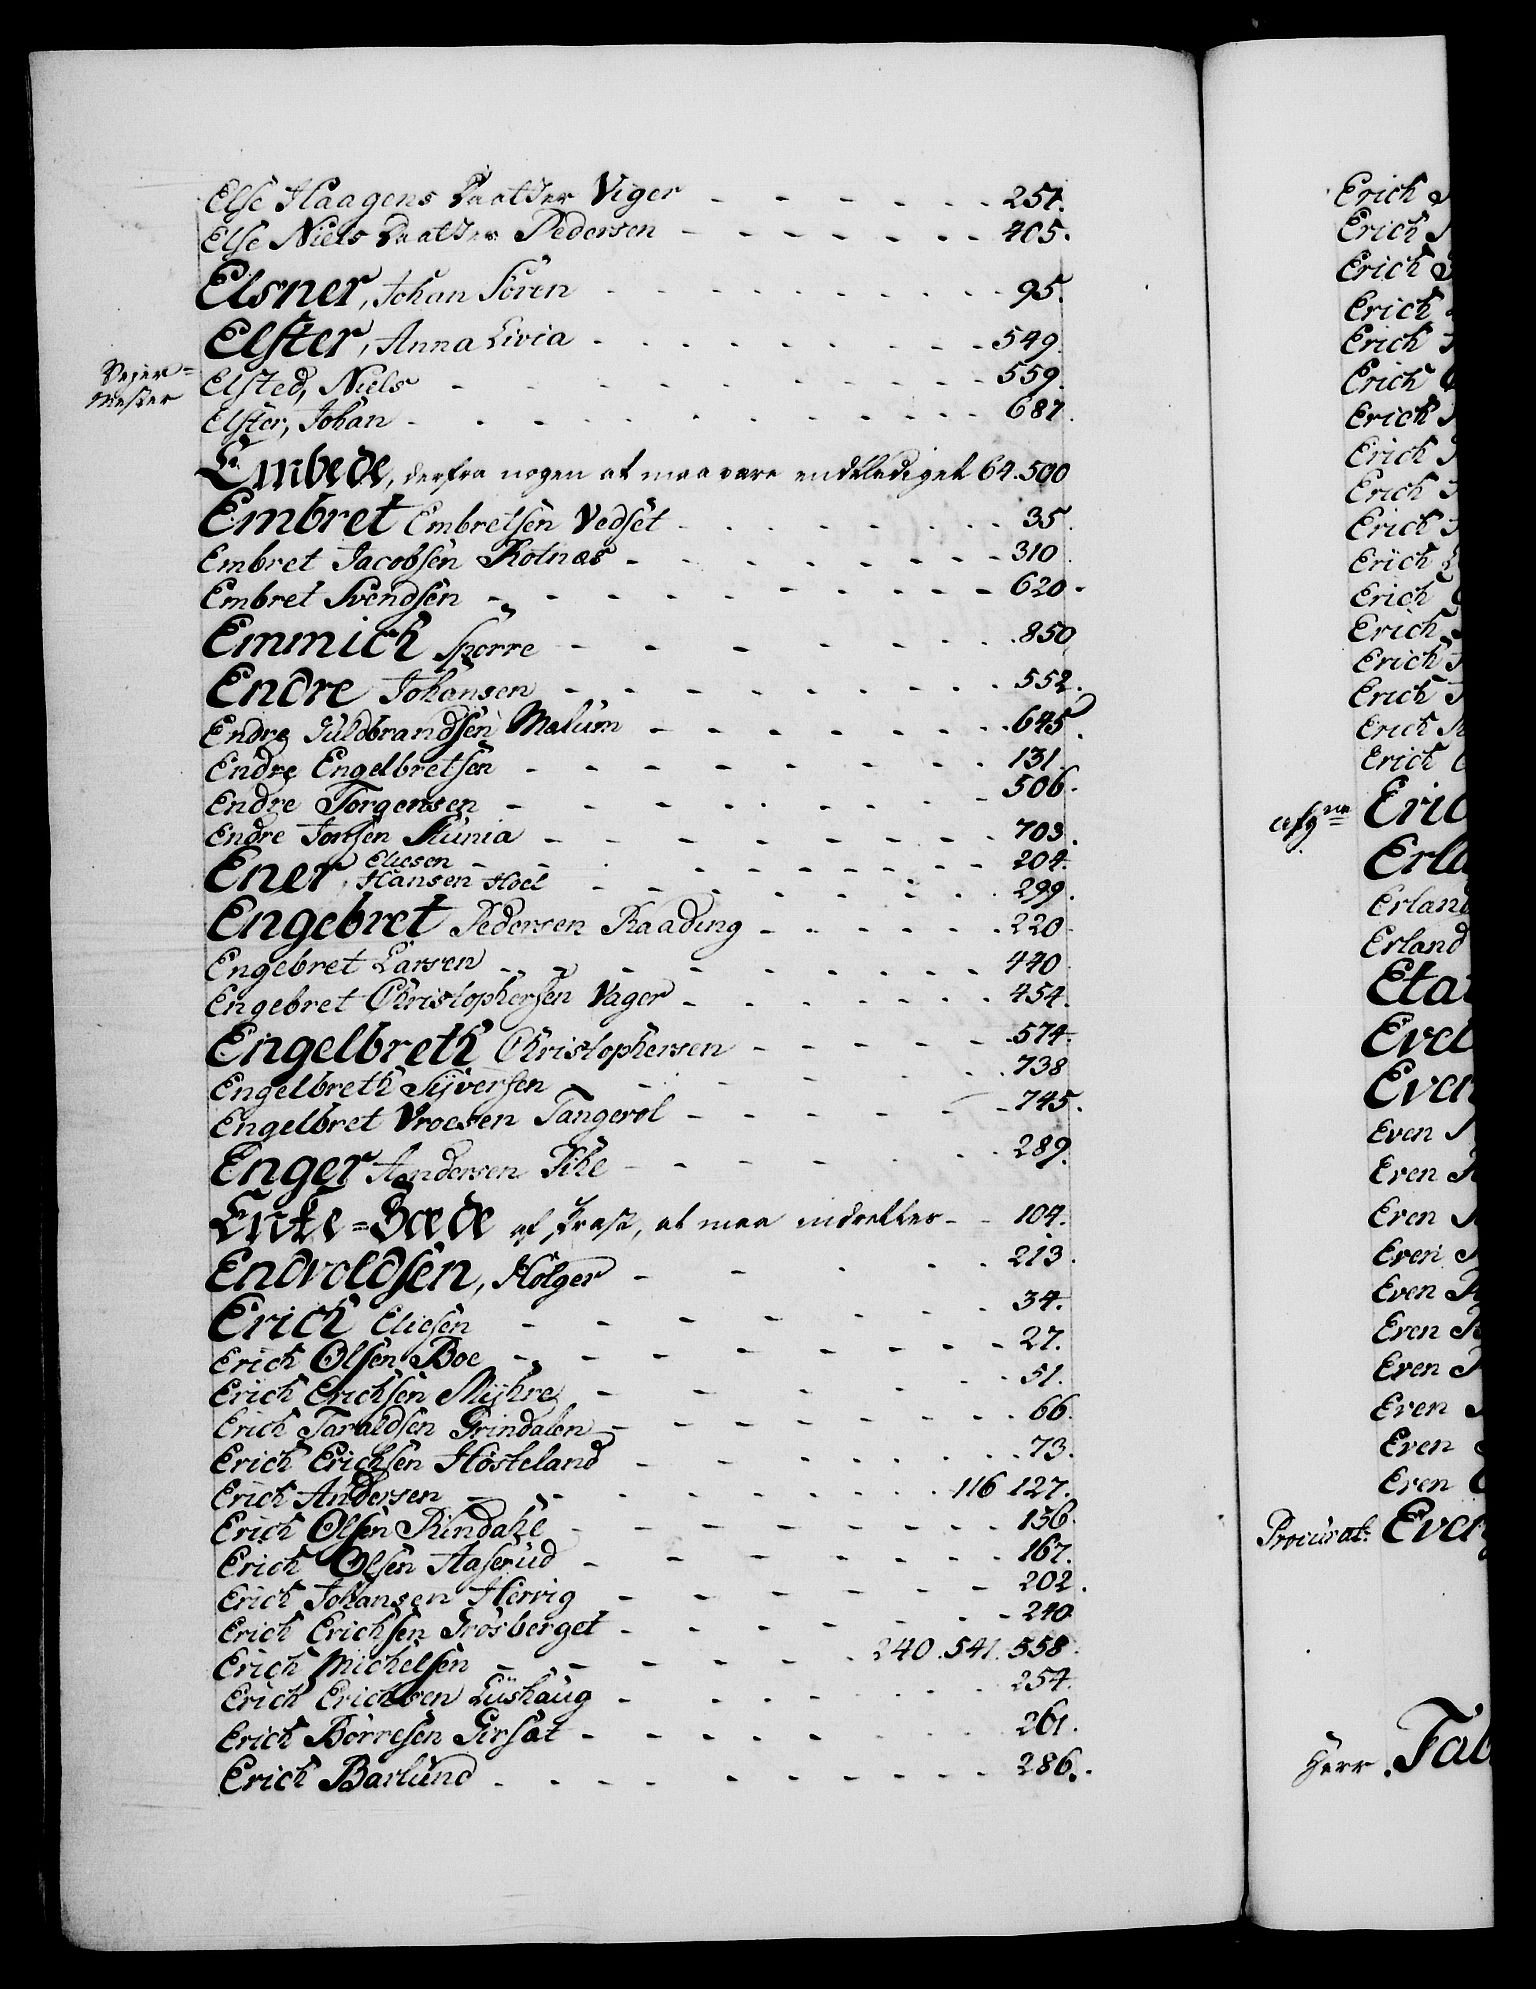 Else Haagens Daatter Viger - - - - - - 254.
Else Niels Daatter Pedersen - - - - - - - 405.
Elsner, Johan Sören - - - - - - - - - 95.
Elster, Anna Livia - - - - - - - - 549.
Vejer= mester Elsted, Niels - - - - - - - - 559.
Elster, Johan - - - - - - - - - 687.
Embede, derfra nogen at maa være entlediget 64.500
Embret Embretsen Vedset - - - - - - 35.
Embret Jacobsen Rotnæs - - - - - - - 310.
Embret Svendsen - - - - - - - - 620.
Emmich Sperre - - - - - - - 850
Endre Johansen - - - - - - - - 552.
Endre Guldbrandsen Melum - - - - - - - 645.
Endre Engelbretsen - - - - - - - - 131.
Endre Torgersen - - - - - - - - 506.
Endre Jonsen - - - - - - - - 703.
Ener, Eliesen - - - - - - - - 204.
Hansen Hoel - - - - - - - 299.
Engebret Pedersen Raading - - - - - - 220.
Engebret Larsen - - - - - - - - 440.
Engebret Christophersen Vager - - - - - - - 454.
Engelbreth Christophersen - - - - - - 574.
Engelbreth Sÿversen - - - - - - 738
Engelbret Vroesen Tangerol - - - - - - - 745.
Enger Andersen - - - - - - 289.
Enke=Sæde af Præst, at maa indrettes - - 104.
Endvoldsen, Holger - - - - - 213.
Erich Eliesen - - - - - - - 34.
Erich Olsen Boe - - - - - - - - 27.
Erich Erichsen Mÿhre - - - - - - 51.
Erich Taraldsen Grindalen - - - - - - - 66.
Erich Erichsen Hösteland - - - - - - - 73.
Erich Andersen - - - - - - - 116 127.
Erich Olsen Rindahl - - - - - - - 136.
Erich Olsen Aaserud - - - - - - - 167.
Erich Johansen Hervig - - - - - - - 202.
Erich Erichsen Grösberget - - - - - - 240.
Erich Michelsen - - - - - - 240.541.558.
Erich Erichsen Lüshaug - - - - - - 254.
Erich Börresen - - - - - - 261.
Erich Barlund - - - - - - - - - 286.
Erich
Erich
Erich
Erich
Erich
Erich
Erich
Erich
Erich
Erich
Erich
Erich
Erich
Erich
Erich
Erich
Erich
Eric
Erla
Erland
Erland
Etat
Even
Even
Even
Even
Even
Even
Even
Even
Even
Even
Even
Procurat: Even
Herr Fab